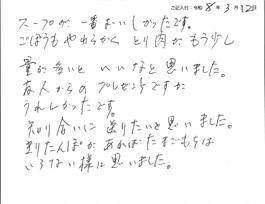 ご記入日：令和 8年 3月 12日
スープが一番おいしかったです。
ごぼうもやわらかく とり肉が もう少し
量が多いと いいなと思いました。
友人からのプレゼントですが
うれしかったです。
知り合いに 送りたいと思いました。
きりたんぽが あれば たまごもちは
いらない様に思いました。